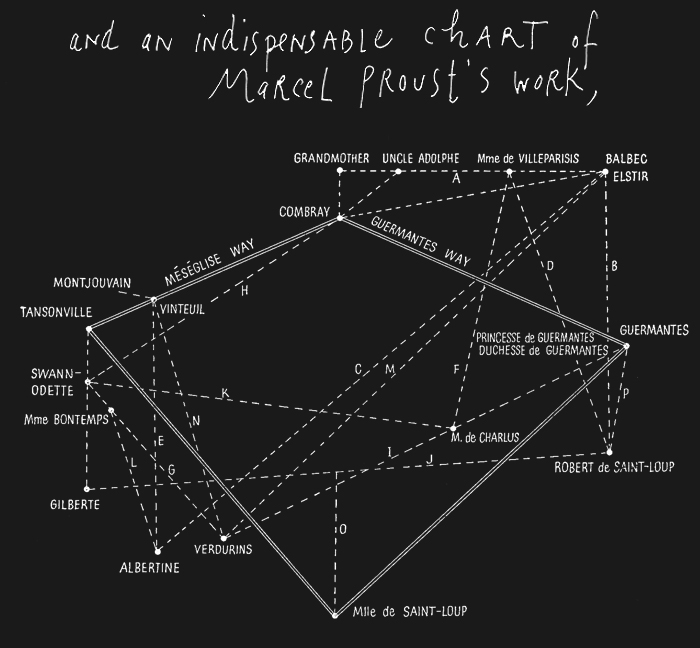 and an indispensable chart of
Marcel Proust's work,
GRANDMOTHER UNCLE ADOLPHE Mme de VILLEPARISIS BALBEC
ELSTIR
A
COMBRAY
GUERMANTES WAY
MÉSÉGLISE WAY
D
B
MONTJOUVAIN
H
VINTEUIL
TANSONVILLE
GUERMANTES
PRINCESSE de GUERMANTES
DUCHESSE de GUERMANTES
SWANN-
ODETTE
C
M
F
K
P
Mme BONTEMPS
N
E
M. de CHARLUS
I
J
L
G
ROBERT de SAINT-LOUP
GILBERTE
O
VERDURINS
ALBERTINE
Mlle de SAINT-LOUP